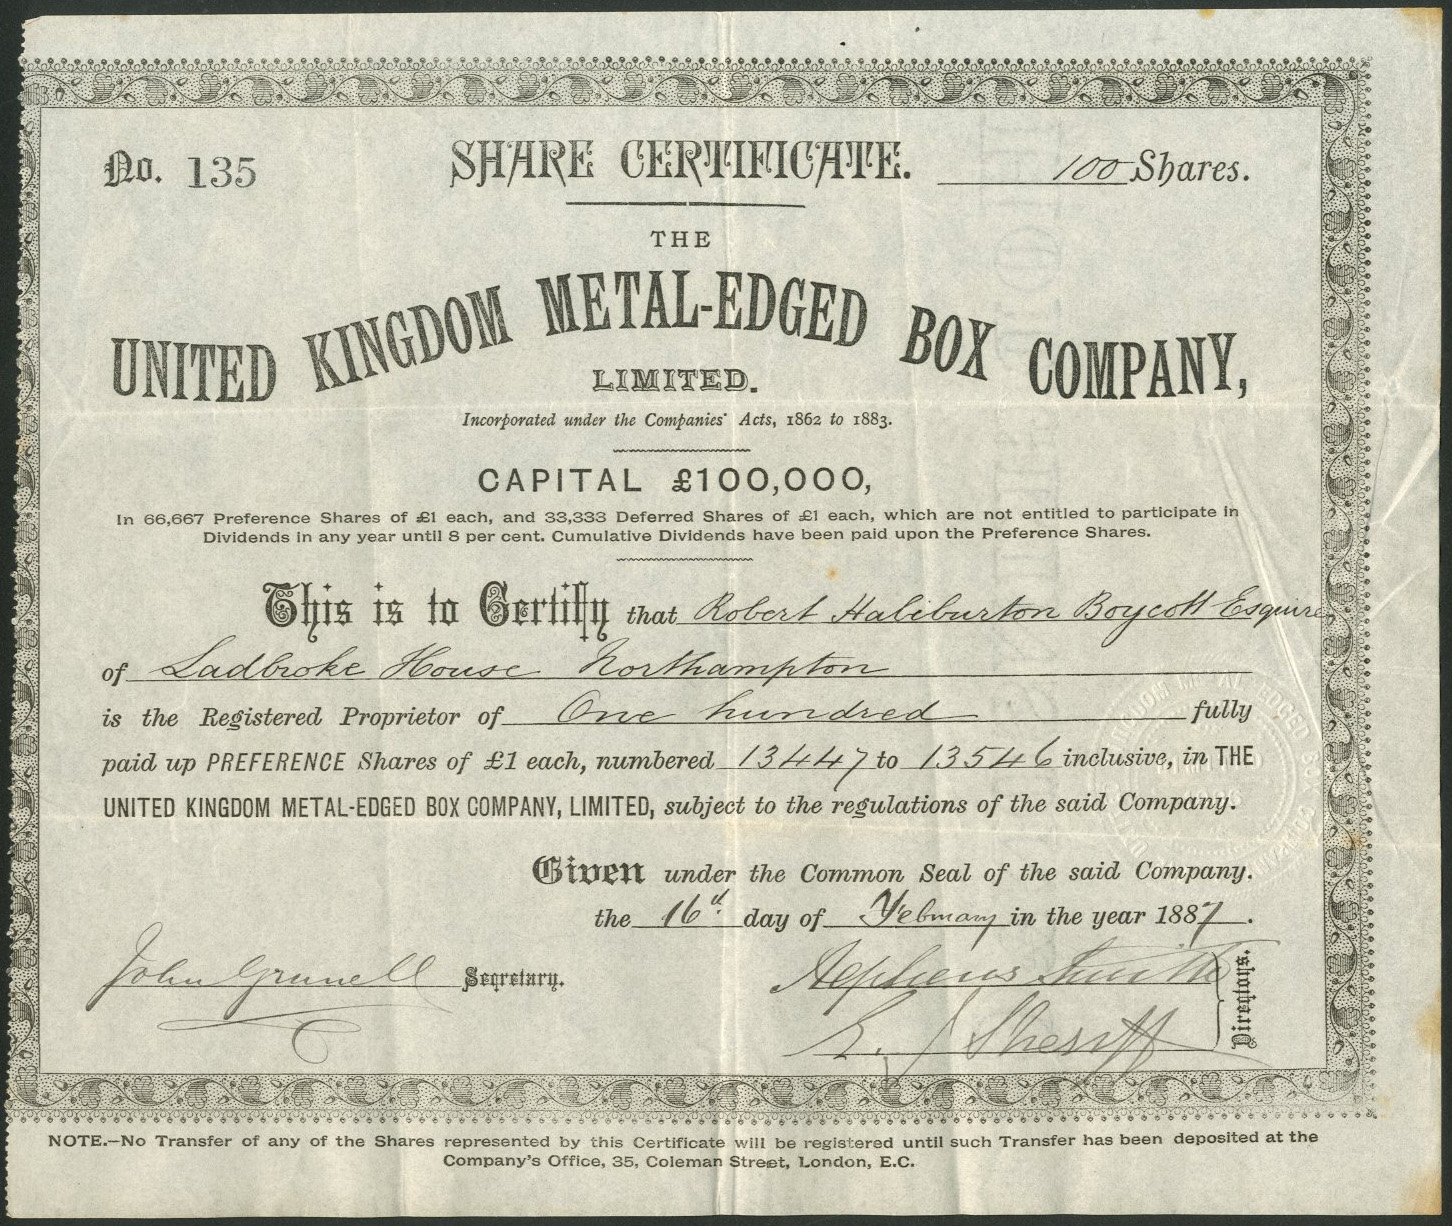 No. 135
SHARE CERTIFICATE.
100 Shares.
THE
UNITED KINGDOM METAL-EDGED BOX COMPANY,
LIMITED.
Incorporated under the Companies' Acts, 1862 to 1883.
CAPITAL £100,000,
In 66,667 Preference Shares of £1 each, and 33,333 Deferred Shares of £1 each, which are not entitled to participate in
Dividends in any year until 8 per cent. Cumulative Dividends have been paid upon the Preference Shares.
This is to Certify that Robert Haliburton Boycott Esquire
of Ladbroke House Northampton
is the Registered Proprietor of One hundred fully
paid up PREFERENCE Shares of £1 each, numbered 13447 to 13546 inclusive, in THE
UNITED KINGDOM METAL-EDGED BOX COMPANY, LIMITED, subject to the regulations of the said Company.
Given under the Common Seal of the said Company.
the 16th day of February in the year 1887.
John Grunell Secretary.
Smith
E. J Sheriff
Directors.
NOTE.—No Transfer of any of the Shares represented by this Certificate will be registered until such Transfer has been deposited at the
Company's Office, 35, Coleman Street, London, E.C.